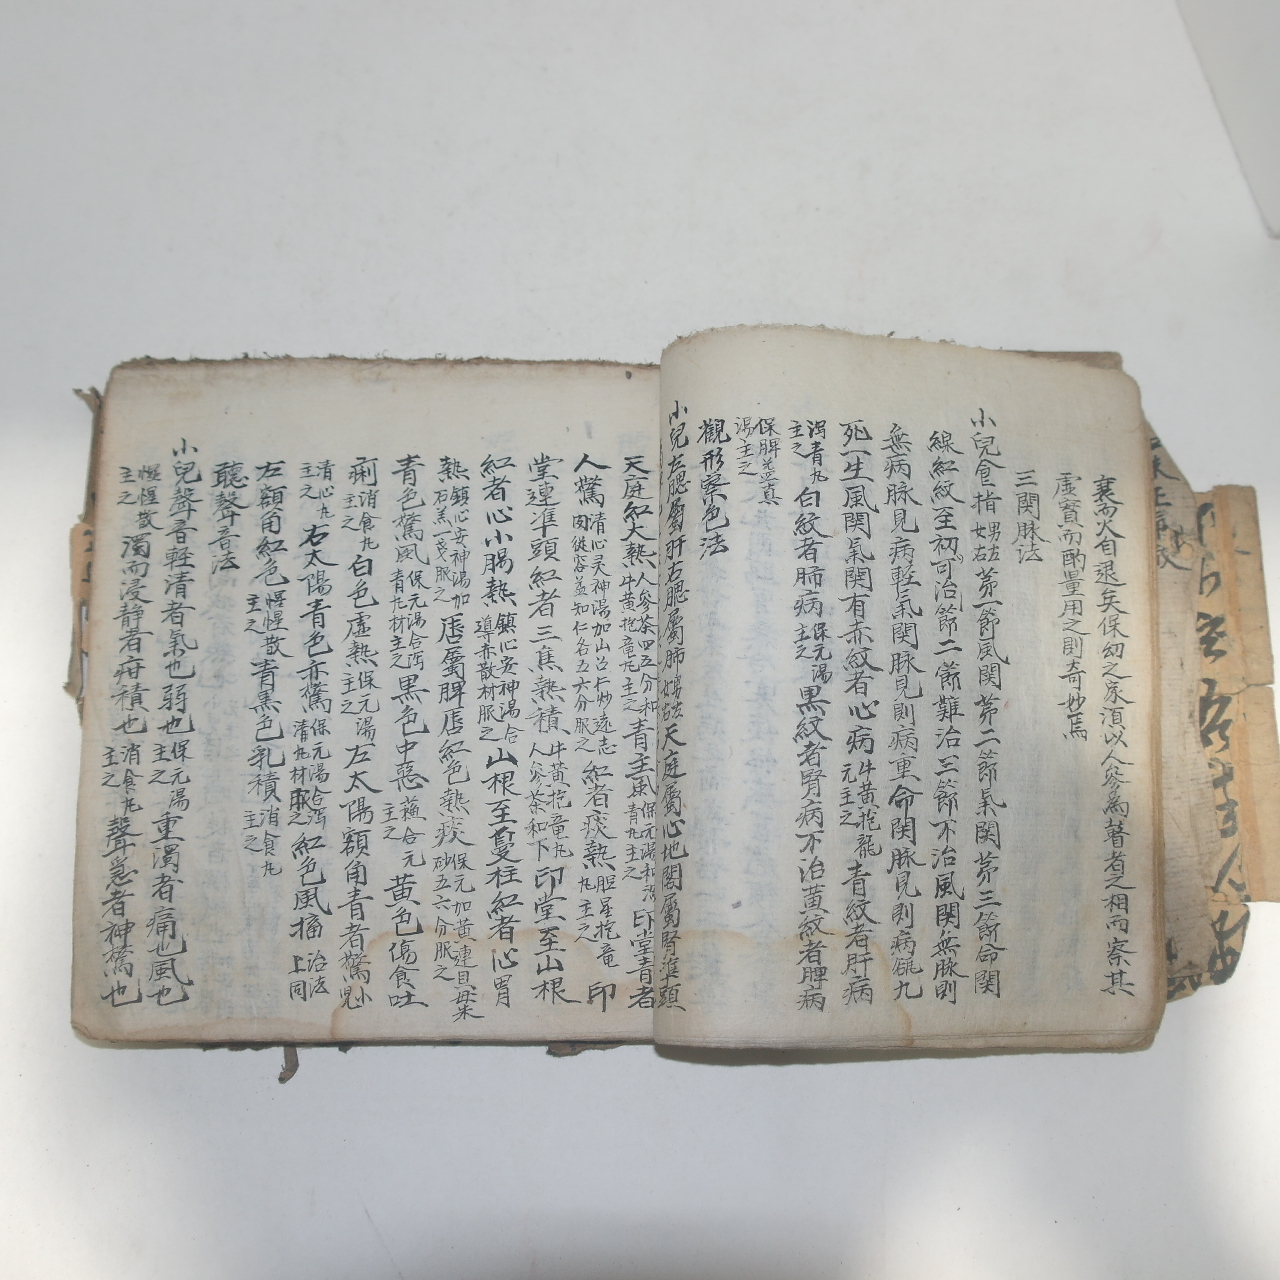 裏而火自退矣保幼之家湏以人參爲瞽者之相而察其
虛實而酌量用之則奇妙焉
三関脉法
小兒食指男左女右苐一節風関苐二節氣関苐三節命関
線紅紋至初可治節二節難治三節不治風関無脉則
無病脉見病輕氣関脉見則病重命関脉見則病砥九
死一生風関氣関有赤紋者心病牛黄抱龍元主之青紋者肝病
瀉青九主之白紋者肺病保元湯主之黒紋者腎病不治黃紋者脾病
保脾益真湯主之
觀形察色法
小兒左腮屬肝右腮屬肺男左女右天庭屬心地閣屬腎準頭
天庭紅大熱人參茶四五分和牛黄抱竜九主之青主風保元湯和瀉青九主之印堂青者
人驚清心安神湯加山召仁炒遠志肉從容益知仁各五六分服之紅者痰熱胆星抱竜九主之印
堂連準頭紅者三焦熱積牛黄抱竜九人參茶和下印堂至山根
紅者心小腸熱鎮心安神湯合導赤散材服之山根至㚇柱紅者心胃
熱鎮心安神湯加石羔一戔服之唇屬脾唇紅色熱痰保元加黃連貝母朱砂五六分服之
青色驚風保元湯合瀉青九材主之黒色中惡蘓合元主之黃色傷食吐
痢消食九主之白色虛熱保元湯主之左太陽額角青者驚小兒
清心九主之右太陽青色亦驚保元湯合瀉清九材服之紅色風搐治法上同
左額角紅色惺惺散主之青黒色乳積消食九主之
聽聲音法
小兒聲音輕清者氣也弱也保元湯主之重濁者痛也風也
惺惺散主之濁而浸静者疳積也消食九主之聲急者神驚也